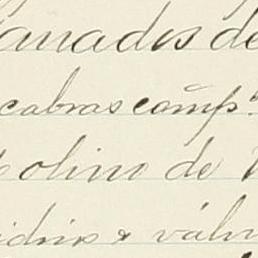 anados de
cabras comp.ª
olino de
idrio & válv